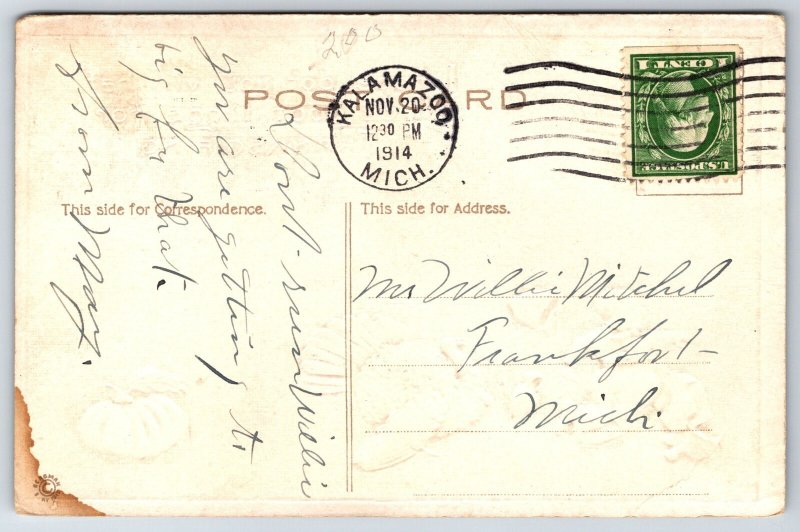 200
POST CARD
KALAMAZOO,
NOV. 20
12 30 PM
1914
MICH.
U.S. POSTAGE
1 CENT 1
This side for Correspondence.
This side for Address.
Dont run Willie
you are getting to
big for that.
From May.
Mr Willie Mitchel
Frankfort
Mich